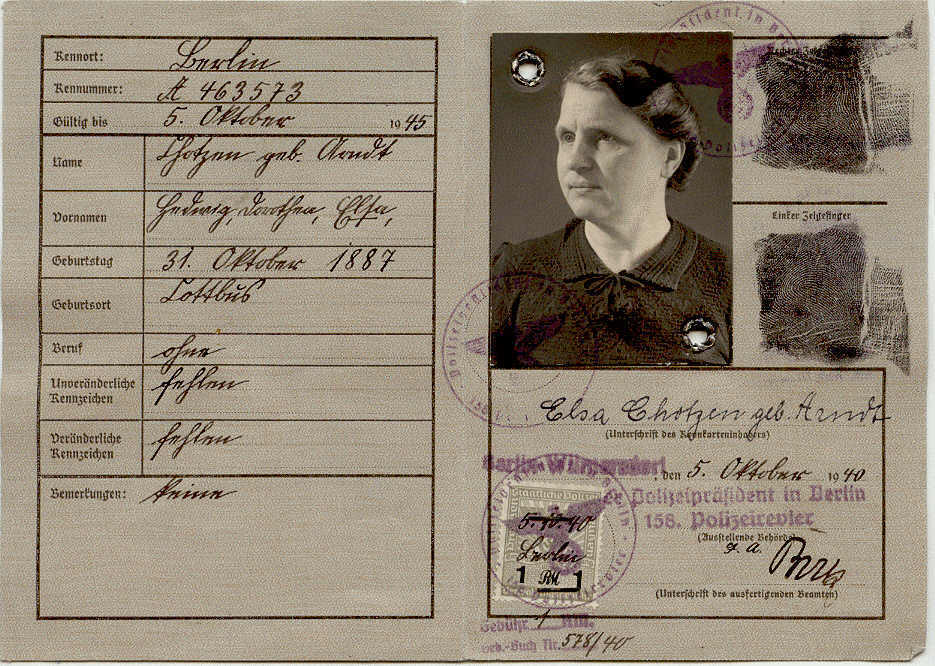 Kennort: Berlin
Kennummer: A 463573
Gültig bis 5. Oktober 1945
Name Chotzen geb. Arndt
Vornamen Hedwig, Dorothea, Elsa,
Geburtstag 31. Oktober 1887
Geburtsort Cottbus
Beruf ohne
Unveränderliche Kennzeichen fehlen
Veränderliche Kennzeichen fehlen
Bemerkungen: keine
Rechter
Linker Zeigefinger
Elsa Chotzen geb. Arndt
(Unterschrift des Kennkarteninhabers)
Berlin-Wilmersdorf, den 5. Oktober 1940
Der Polizeipräsident in Berlin
158. Polizeirevier
(Ausstellende Behörde)
5.10.40
Berlin
1 RM 1
(Unterschrift des ausfertigenden Beamten)
Gebühr 1 RM.
Geb.-Buch Nr. 578/40